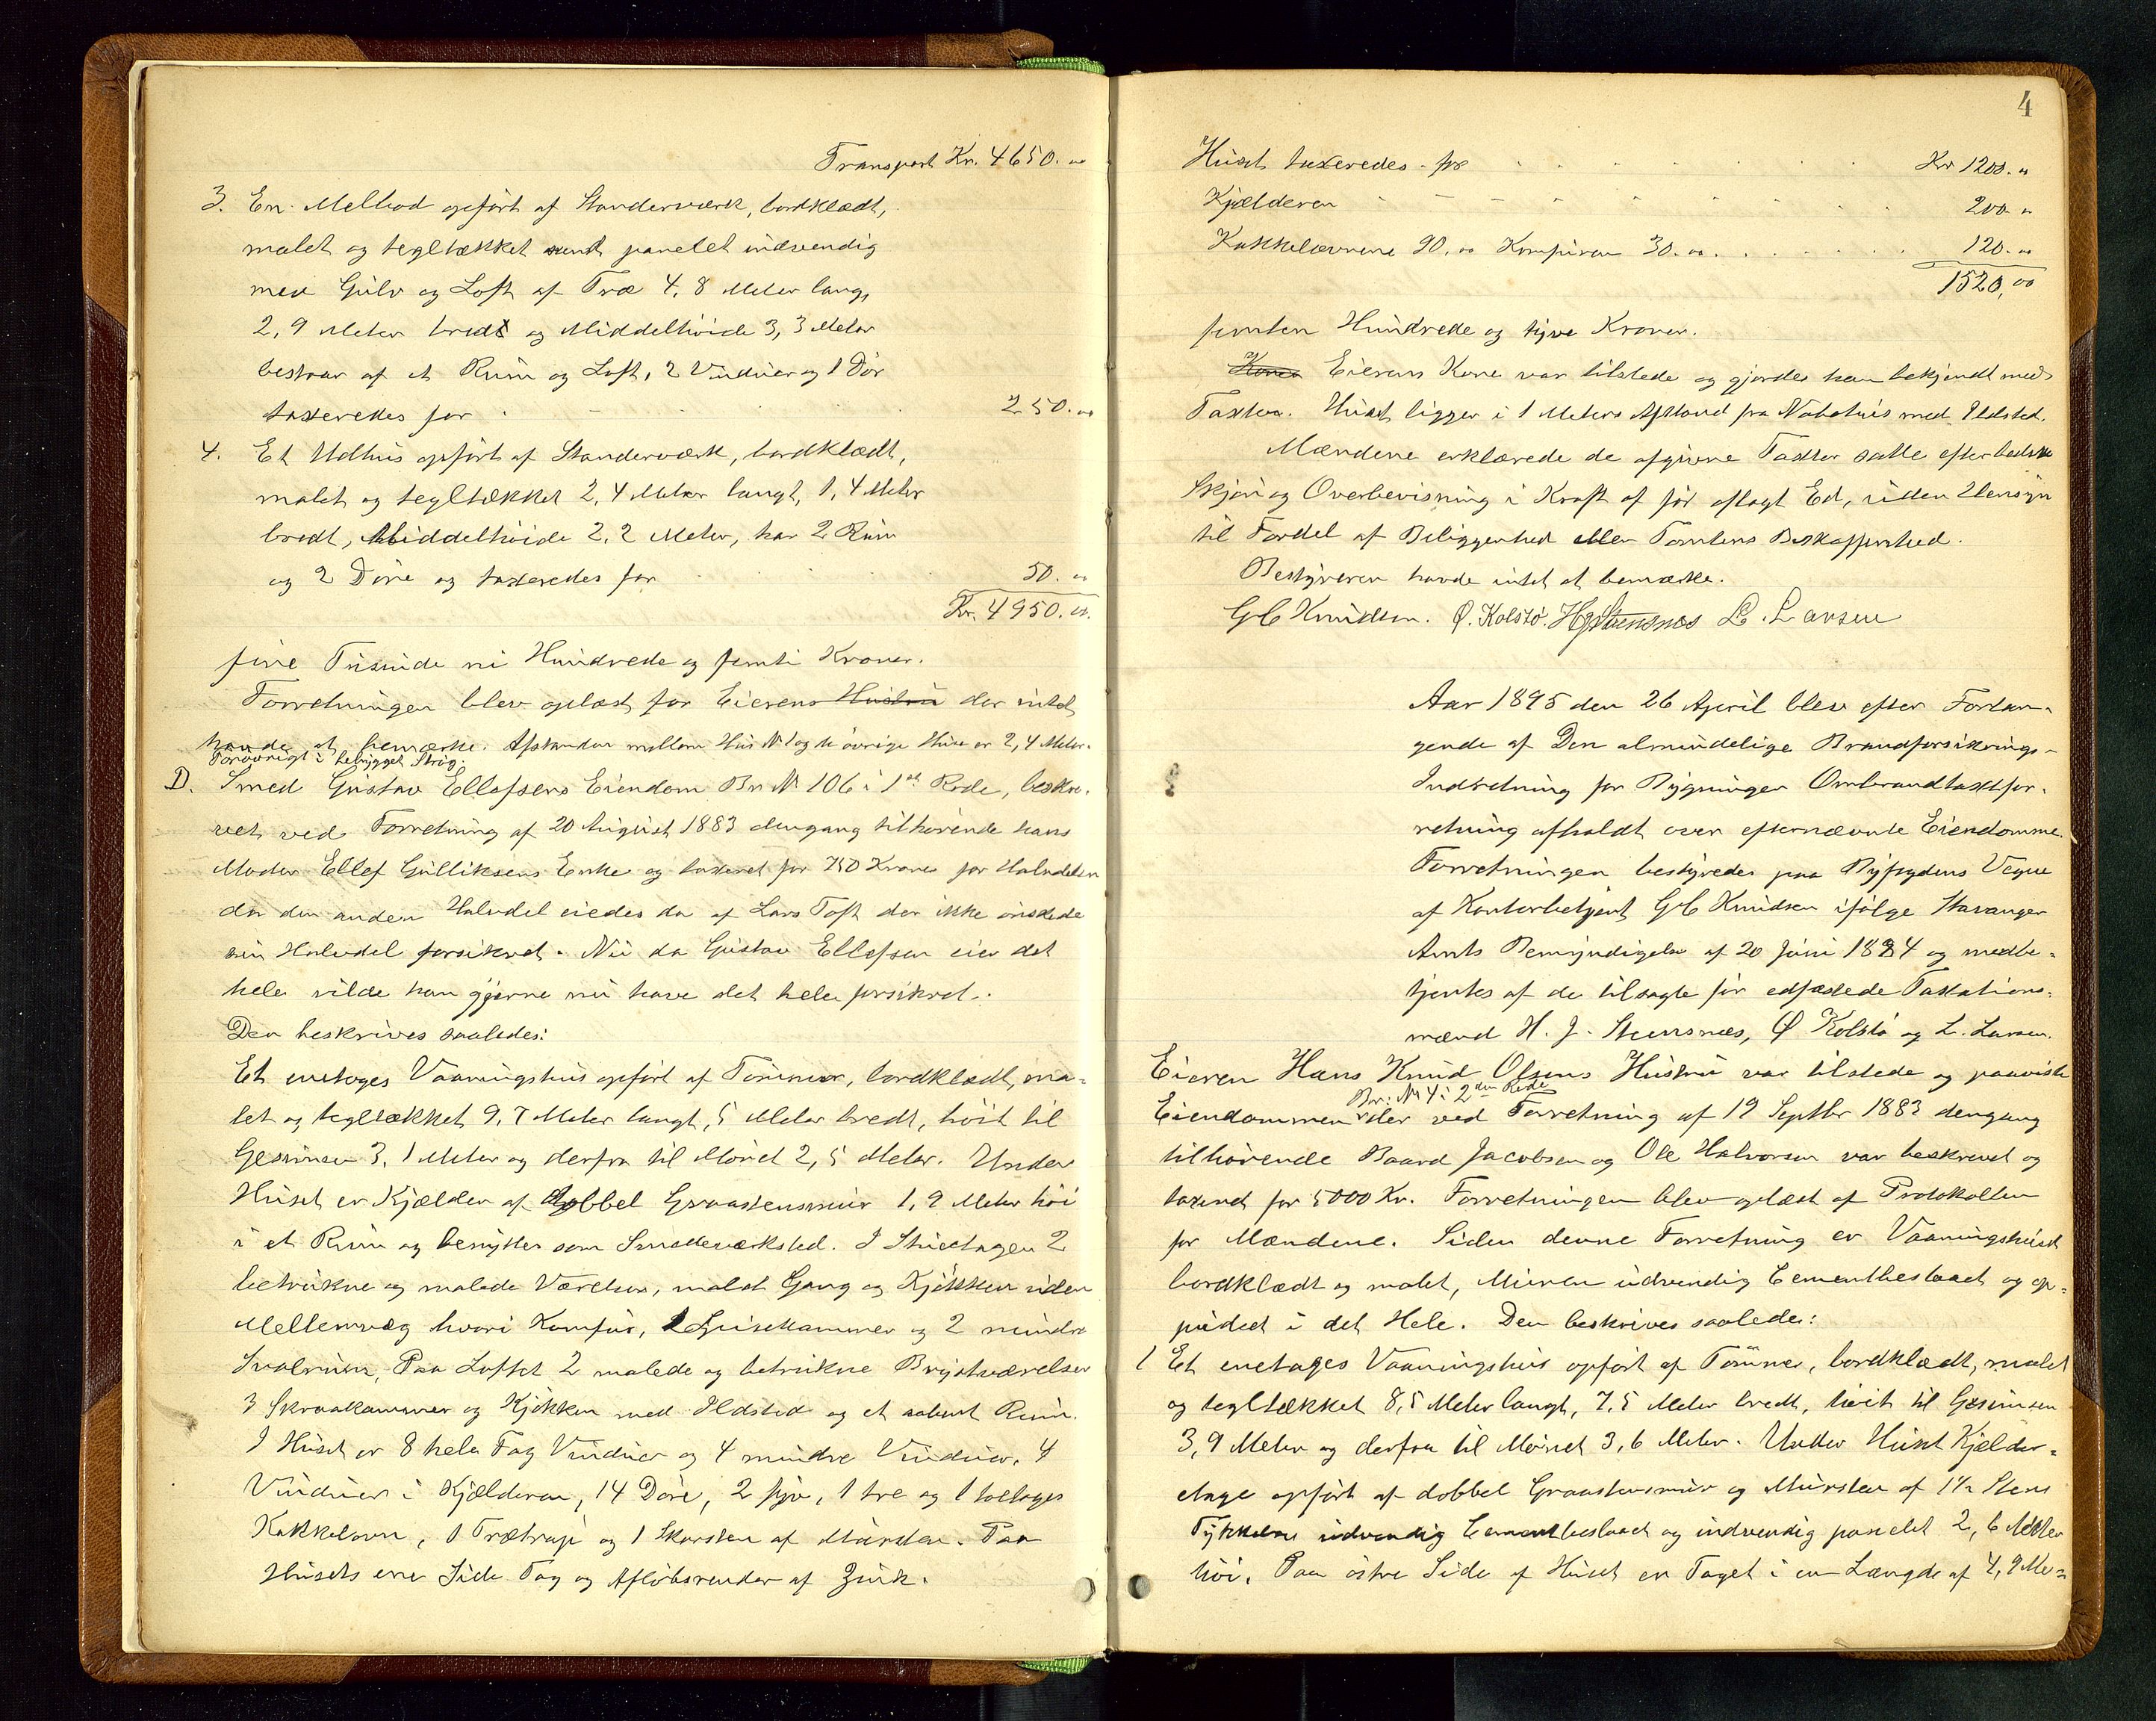 Transport Kr. 4650. "
3. En Melbod opført af Standerværk, bordklædt,
malet og tegltækket samt panelet indvendig
med Gulv og Loft af Træ 4,8 Meter lang,
2,9 Meter bredt og Middelhøide 3,3 Meter
bestaar af et Rum og Loft, 2 Vinduer og 1 Dør
taxeredes for 250. "
4. Et Udhus opført af Standerværk, bordklædt,
malet og tegltækket 2,4 Meter langt, 1,4 Meter
bredt, Middelhøide 2,2 Meter, har 2 Rum
og 2 Døre og taxeredes for 50. "
Kr. 4950. "
fire Tusinde ni Hundrede og femti Kroner.
Forretningen blev oplæst for Eierens Hustru der intet
havde at bemærke. Afstanden mellem Hus N 1 og de øvrige Huse er 2,4 Meter.
Forøvrigt i bebygget Strøg.
D. Smed Gustav Ellefsens Eiendom Br N 106 i 1ste Rode, beskre-
vet ved Forretning af 20 August 1883 dengang tilhørende hans
Moder Ellef Gulliksens Enke og taxeret for 750 Kroner for Halvdelen
da den anden Halvdel eiedes da af Lars Toft der ikke ønskede
sin Halvdel forsikret. Nu da Gustav Ellefsen eier det
hele vilde han gjerne nu have det hele forsikret.
Den beskrives saaledes:
Et enetages Vaaningshus opført af Tømmer, bordklædt, ma-
let og tegltækket 9,7 Meter langt, 5 Meter bredt, høit til
Gesimsen 3,1 Meter og derfra til Mønet 2,5 Meter. Under
Huset er Kjælder af dobbel Graastensmur 1,9 Meter høi
i et Rum og benyttes som Smedeværksted. I Stueetagen 2
betrukne og malede Værelser, malet Gang og Kjøkken uden
Mellemvæg hvori Komfur, 1 Spisekammer og 2 mindre
Svalrum, Paa Loftet 2 malede og betrukne Brystværelser
3 Skraakammer og Kjøkken med Ildsted og et aabent Rum.
I Huset er 8 hele Fag Vinduer og 4 mindre Vinduer, 4
Vinduer i Kjælderen, 14 Døre, 2 Gjør, 1 tre og 1 toetages
Kakkelovn, 1 Trætrap og 1 Skorsten af Mursten. Paa
Husets ene Side Tag og Afløbsrender af Zink.
4
Huset taxeredes for Kr 1200. "
Kjælderen 200. "
Kakkelovnene 90. " Komfuren 30. " 120. "
1520, 00
femten Hundrede og tyve Kroner.
Konen Eierens Kone var tilstede og gjordes hun bekjendt med
Taxten. Huset ligger i 1 Meters Afstand fra Nabohus med Ildsted.
Mændene erklærede de afgivne Taxter satte efter bedste
Skjøn og Overbevisning i Kraft af før aflagt Ed, uden Hensyn
til Fordel af Beliggenhed eller Tomtens Beskaffenhed.
Bestyreren havde intet at bemærke.
G C Knudsen. Ø. Kolstø. H J Stensnæs L. Larsen
Aar 1895 den 26 April blev efter Forlan-
gende af Den almindelige Brandforsikrings-
Indretning for Bygninger Ombrandtaxtfor-
retning afholdt over efternævnte Eiendomme.
Forretningen bestyredes paa Byfogdens Vegne
af Kontorbetjent G C Knudsen ifølge Stavanger
Amts Bemyndigelse af 20 Juni 1884 og medbe-
tjentes af de tilsagte før edfæstede Taxations-
mænd H. J. Stensnæs, Ø Kolstø og L. Larsen.
Eieren Hans Knud Olsens Hustru var tilstede og paaviste
Br: N 4 i 2den Rode
Eiendommen der ved Forretning af 19 Septbr 1883 dengang
tilhørende Baard Jacobsen og Ole Halvorsen var beskrevet og
taxeret for 5000 Kr. Forretningen blev oplæst af Protokollen
for Mændene. Siden denne Forretning er Vaaningshuset
bordklædt og malet, Muren udvendig Cementbeslaaet og op-
pudset i det Hele. Den beskrives saaledes:
1 Et enetages Vaaningshus opført af Tømmer, bordklædt, malet
og tegltækket 8,5 Meter langt, 7,5 Meter bredt, høit til Gesimsen
3,9 Meter og derfra til Mønet 3,6 Meter. Under Huset Kjælder-
etage opført af dobbel Graastensmur og Mursten af 1½ Stens
Tykkelse udvendig Cementbeslaaet og indvendig panelet 2,6 Meter
høi. Paa østre Side af Huset er Taget i en Længde af 4,9 Me-